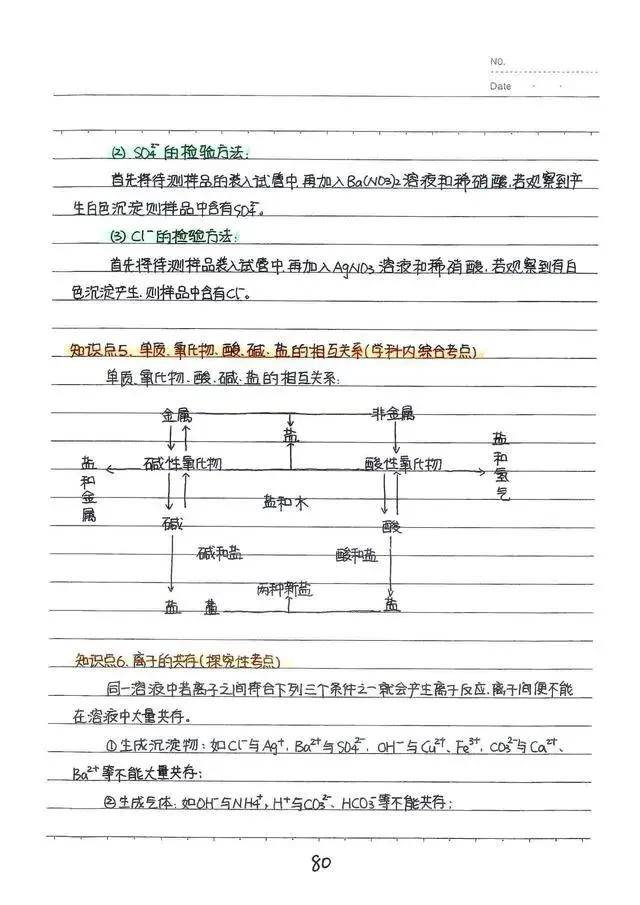 NO.
Date
(2) SO₄²⁻的检验方法:
首先将待测样品的装入试管中,再加入Ba(NO3)2溶液和稀硝酸,若观察到产
生白色沉淀则样品中含有SO₄²⁻。
(3) Cl⁻的检验方法:
首先将待测样品装入试管中,再加入AgNO3溶液和稀硝酸,若观察到有白
色沉淀产生,则样品中含有Cl⁻。
知识点5、单质、氧化物、酸、碱、盐的相互关系(学科内综合考点)
单质、氧化物、酸、碱、盐的相互关系:
金属 盐 非金属
盐和金属 碱性氧化物 酸性氧化物 盐和氢气
盐和水
碱 酸
碱和盐 酸和盐
两种新盐
盐 盐 盐
知识点6、离子的共存(探究性考点)
同一溶液中若离子之间符合下列三个条件之一就会产生离子反应,离子间便不能
在溶液中大量共存。
①生成沉淀物:如Cl⁻与Ag⁺、Ba²⁺与SO₄²⁻、OH⁻与Cu²⁺、Fe³⁺、CO₃²⁻与Ca²⁺、
Ba²⁺等不能大量共存;
②生成气体:如OH⁻与NH4⁺,H⁺与CO₃²⁻、HCO₃⁻等不能共存;
80